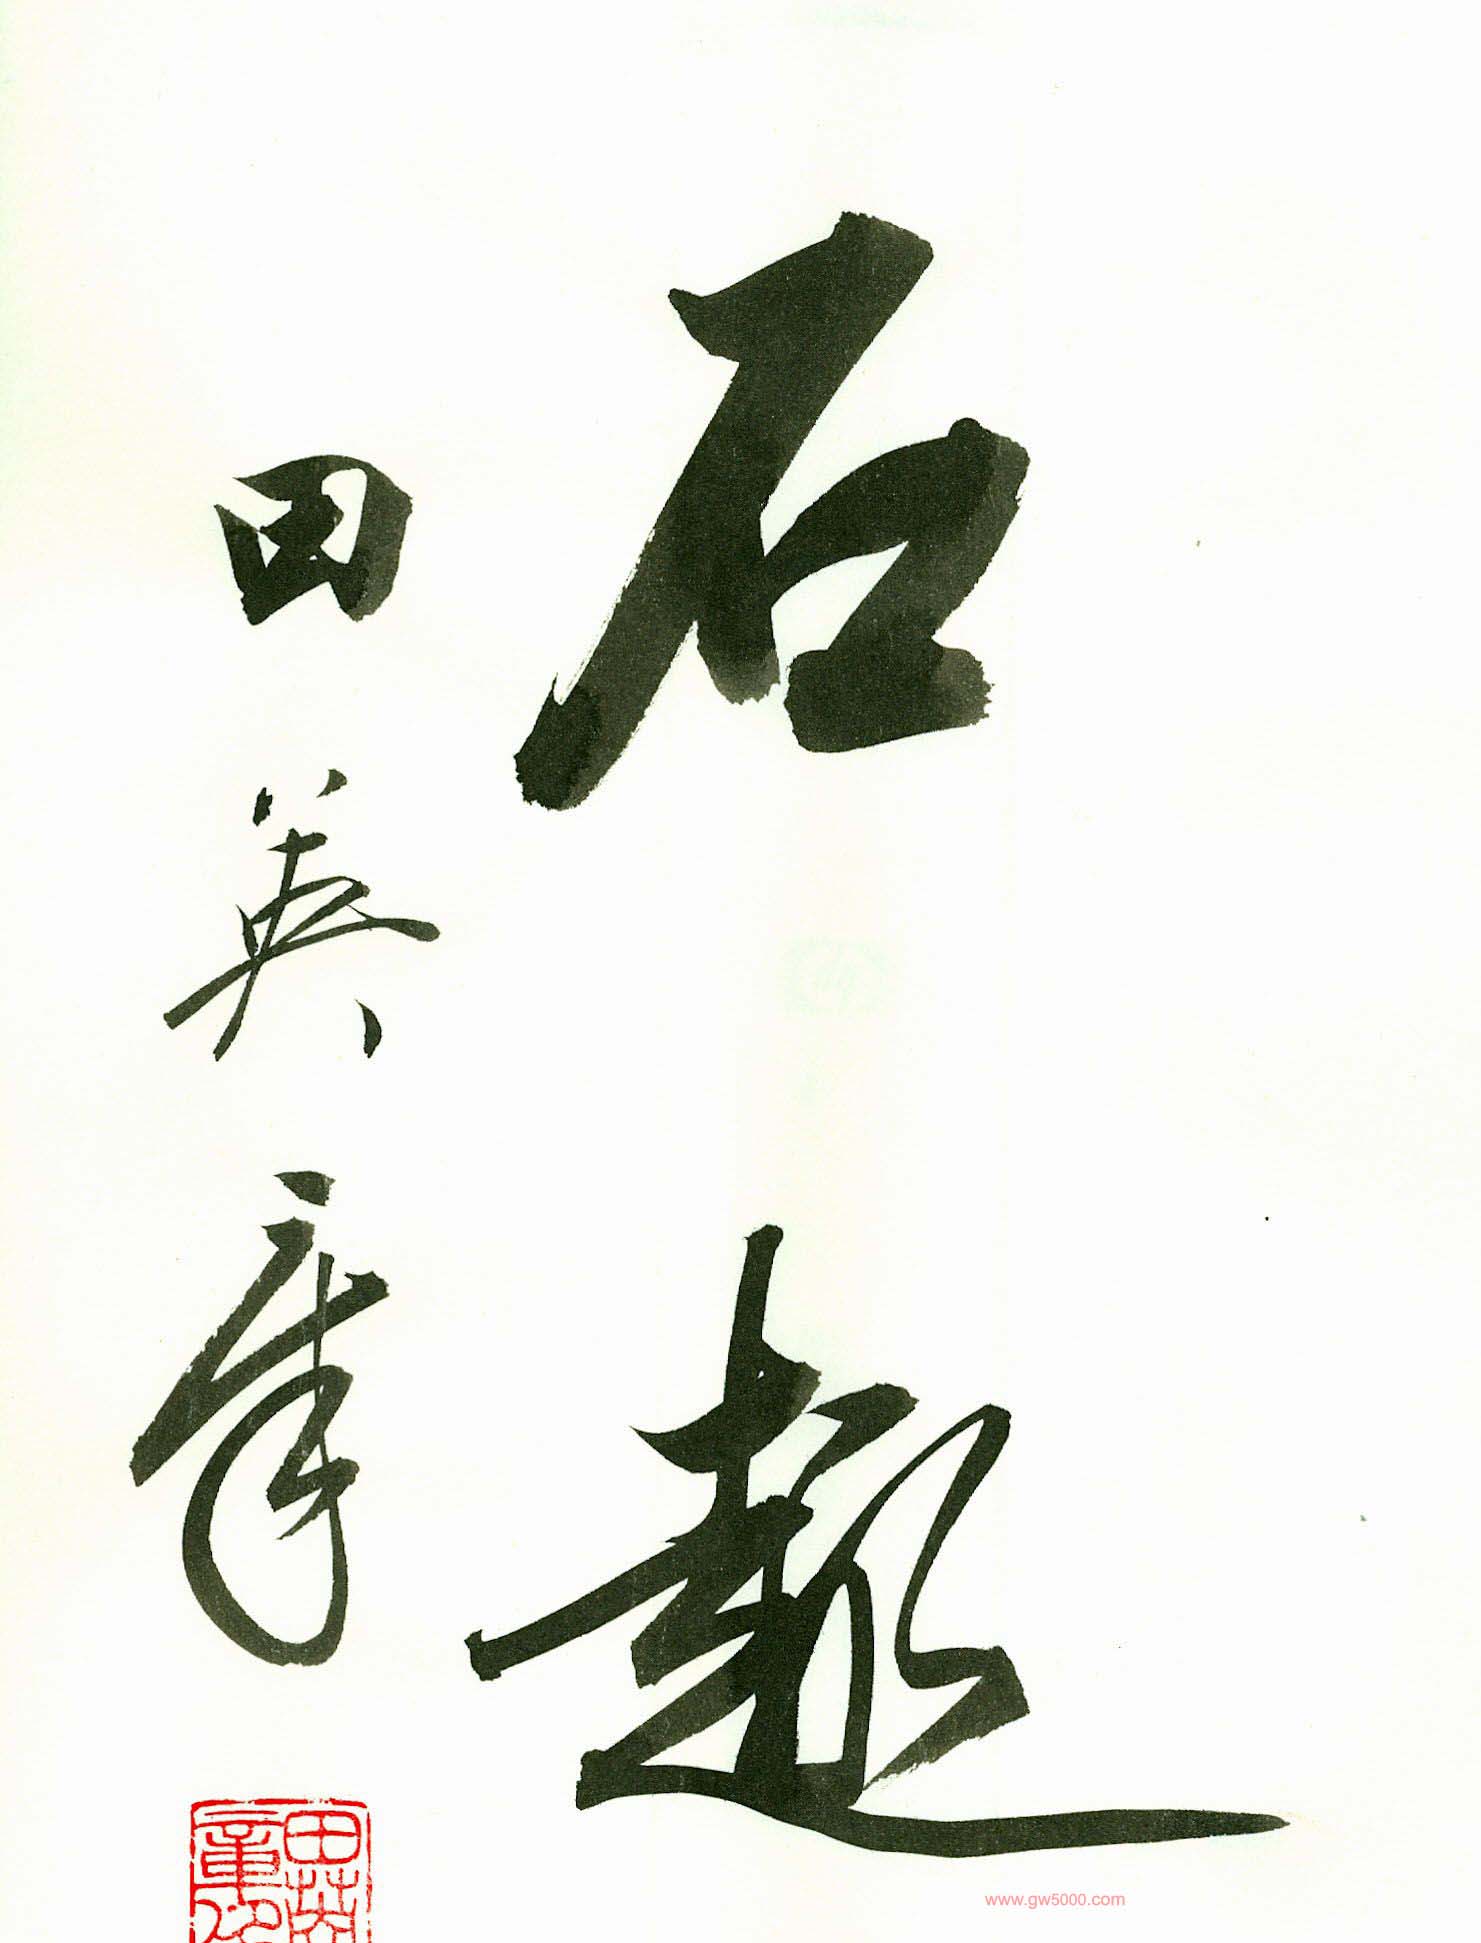 石趣
田英章
田英章印
www.gw5000.com